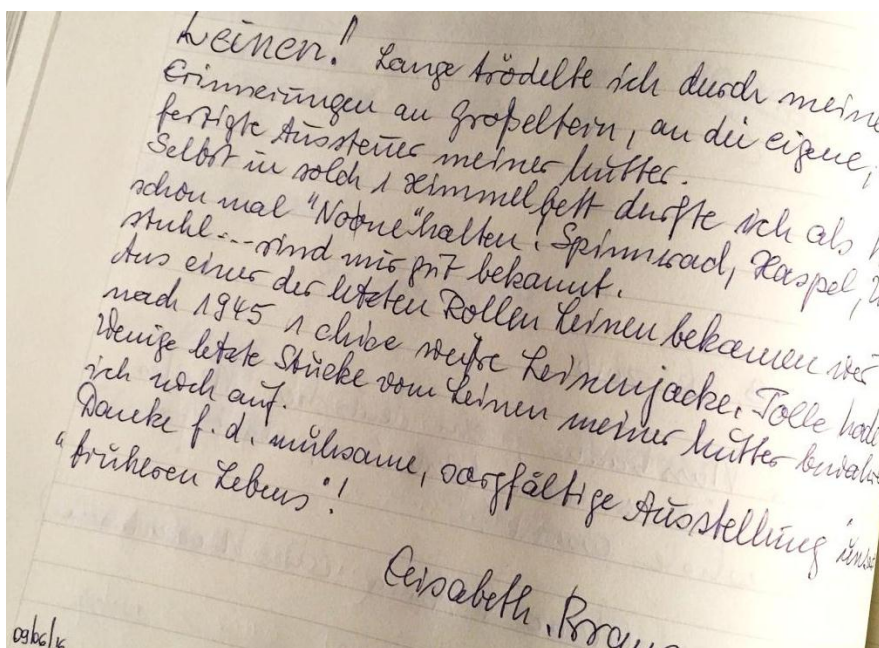 Leinen! Lange trödelte ich durch meine
Erinnerungen an Großeltern, an die eigene,
fertigte Aussteuer meiner Mutter.
Selbst in solch 1 Himmelbett durfte ich als
schon mal "Noone" halten! Spinnrad, Haspel,
stuhl --- sind mir gut bekannt.
Aus einer der letzten Rollen Leinen bekamen wir
nach 1945 1 chice weiße Leinenjacke. Tolle
Wenige letzte Stücke vom Leinen meiner Mutter bewahre
ich noch auf.
Danke f. d. mühsame, sorgfältige Ausstellung "
"früheren Lebens"!
Elisabeth
09/06/16